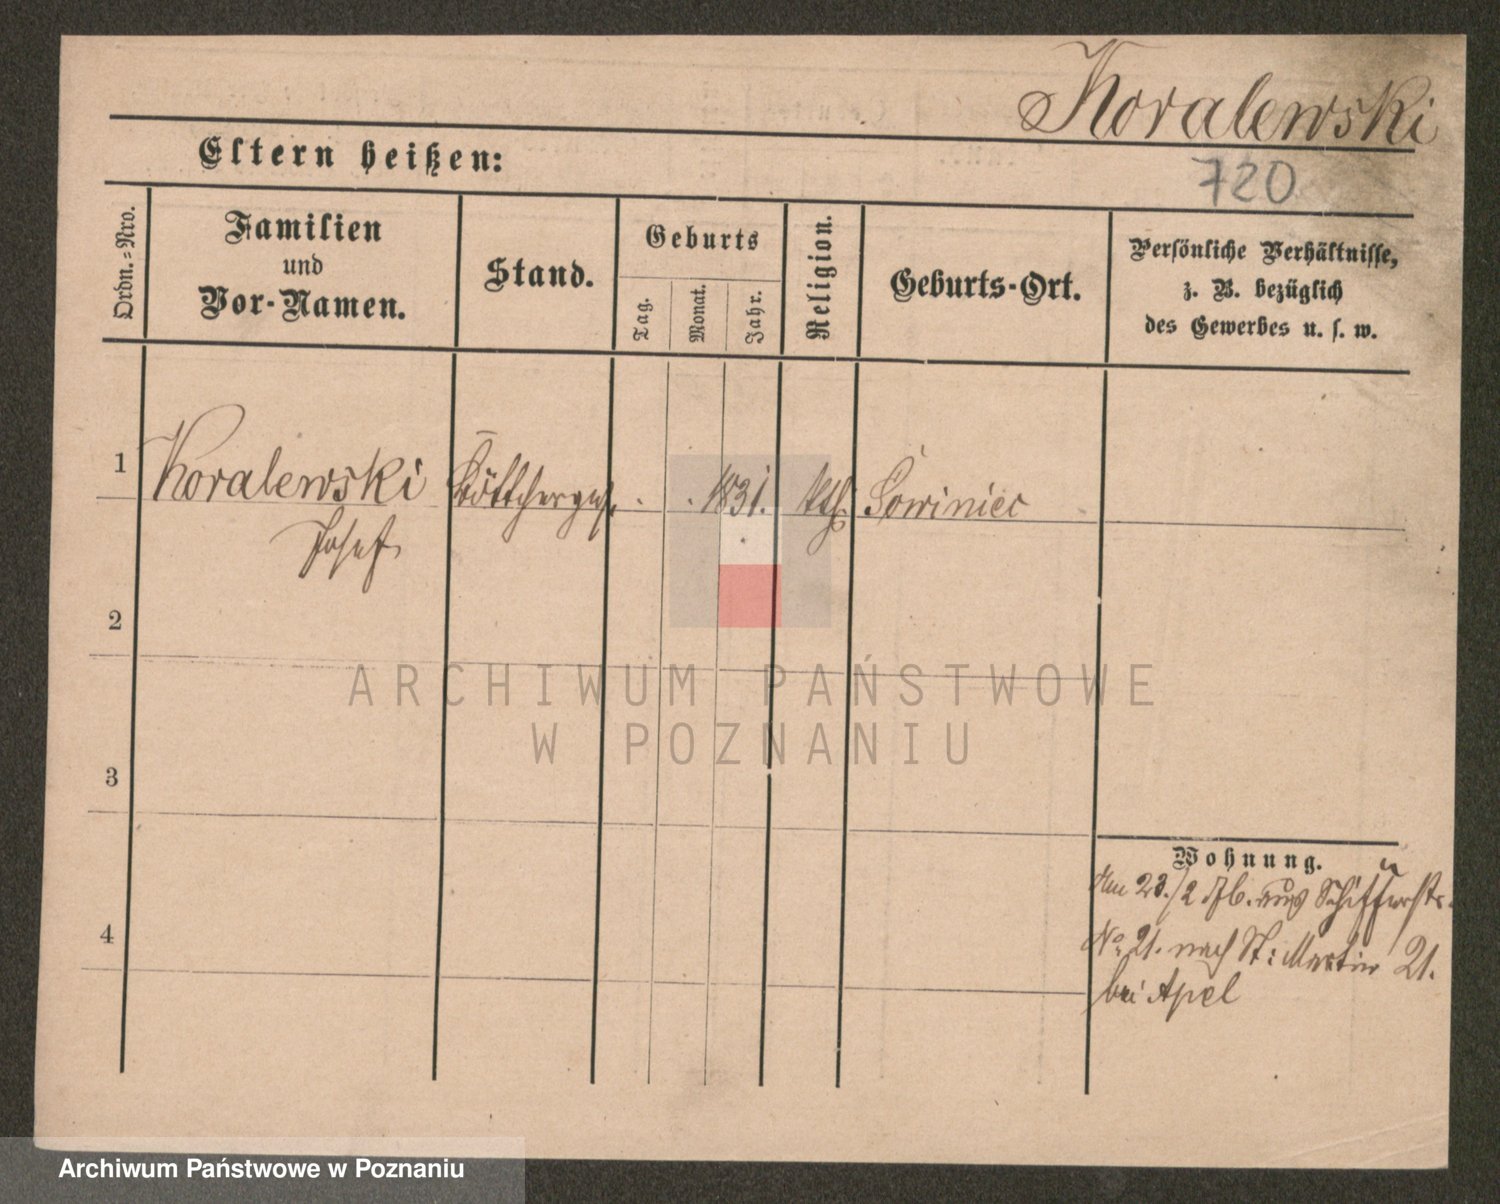 Koralewski
Eltern heißen:
720
Ordn.=Nro.
Familien
und
Vor-Namen.
Stand.
Geburts
Tag.
Monat.
Jahr.
Religion.
Geburts-Ort.
Persönliche Verhältnisse,
z. B. bezüglich
des Gewerbes u. s. w.
1
Koralewski Böttcherges. 1831. kth. Sowiniec
Josef
2
3
4
Wohnung.
Am 23./2 76. aus Schifferstr.
No. 21. nach St: Martin 21.
bei Apel
ARCHIWUM PAŃSTWOWE
W POZNANIU
Archiwum Państwowe w Poznaniu